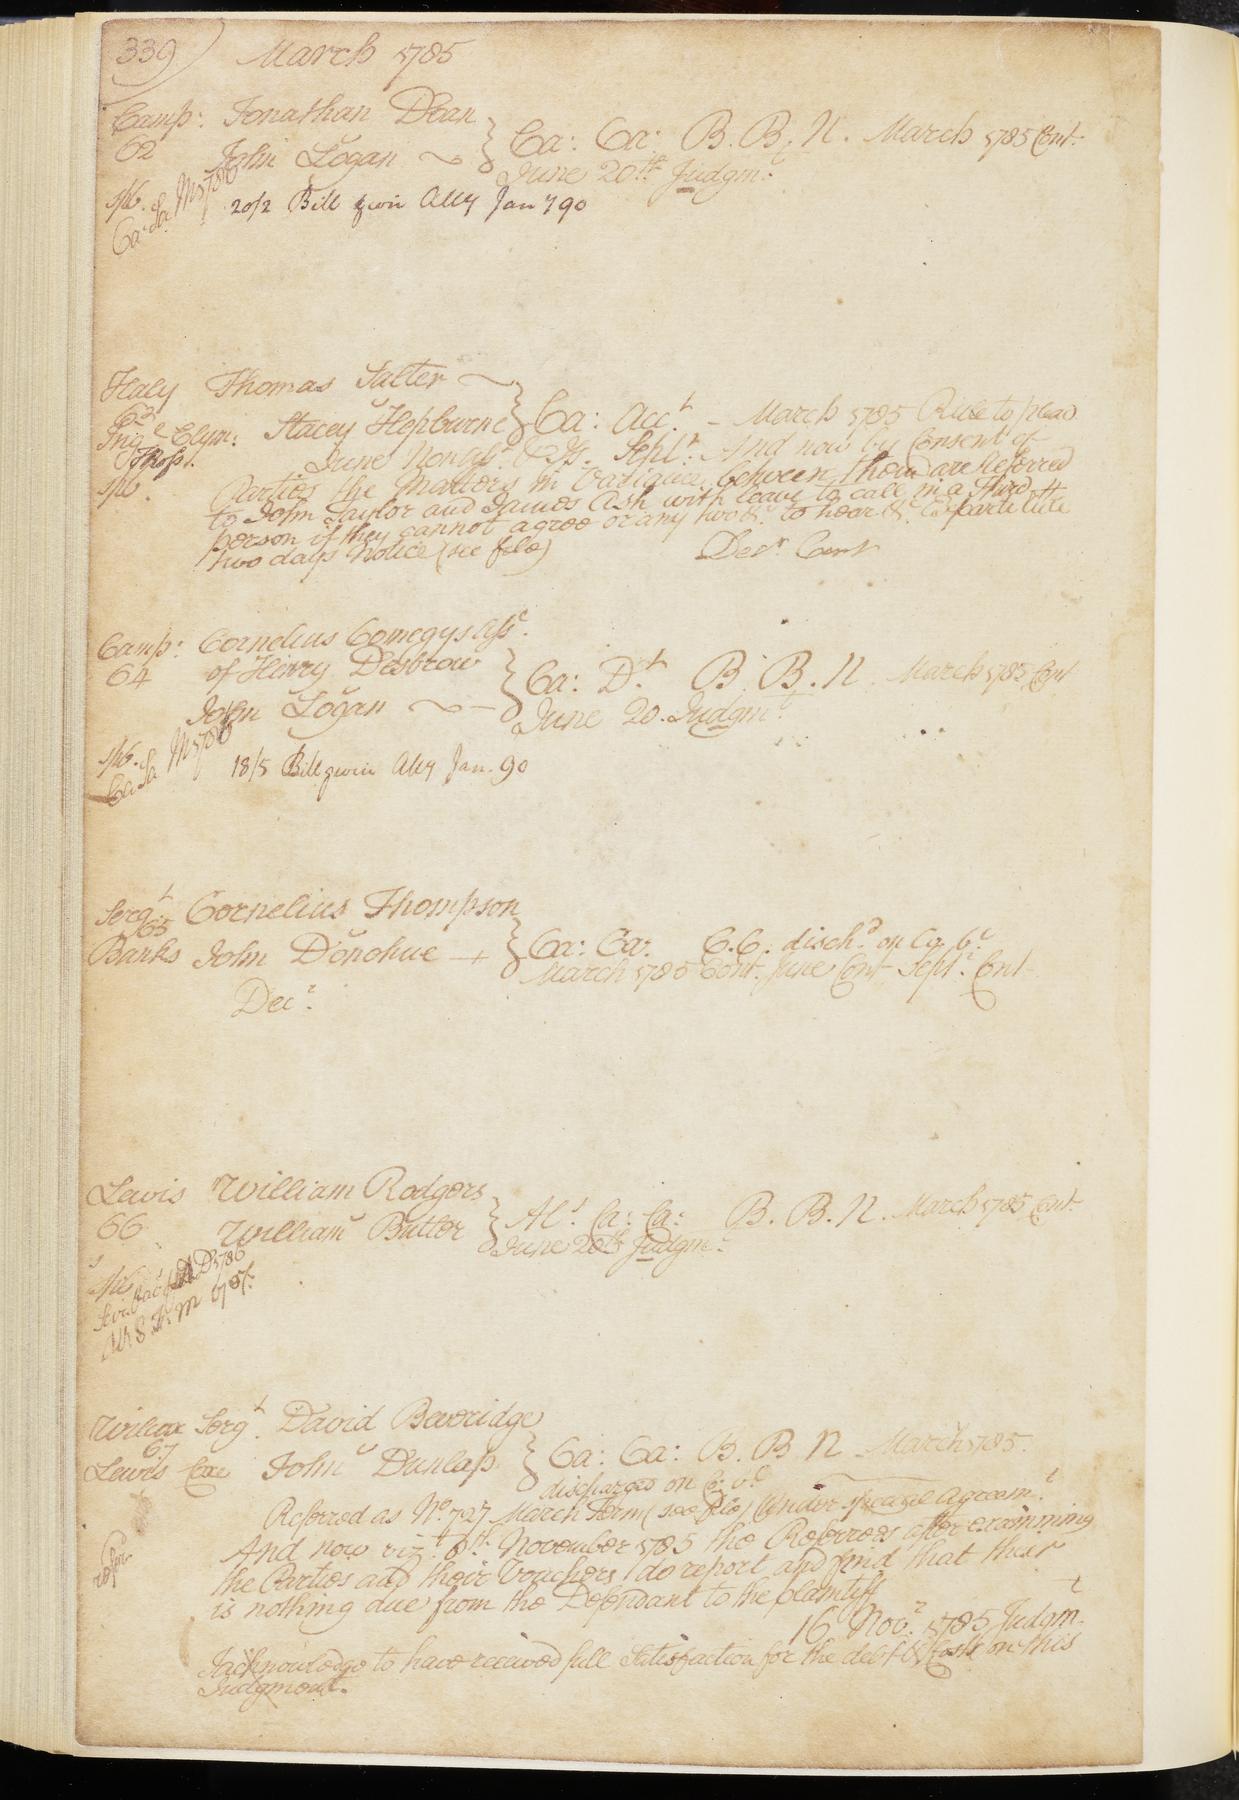 339) March 1785
Camp: Jonathan Dean
62 John Logan } Ca: Ca: B. B. N. March 1785 Cont.
June 20th Judgmt.
Ca. Sa. M 1786
20/2 Bill given Atty Jan 790
Haly Thomas Salter
63
Ing.e Clym: Stacey Hepburne } Ca: Acct. - March 1785 Rule to plead
June Sept.r And now by Consent of
Parties the Matters in Variance between them are Referred
to John Taylor and James Ash with leave to call in a Third
person if they cannot agree or any two &c. to hear &c. Exparte
two days Notice (see file) Decr. Cont
Camp: Cornelius Comegys Asse.
64 of Henry Disbrow
John Logan } Ca: Dt. B. B. N. March 1785 Cont
June 20. Judgmt.
Ca. Sa M 1786
18/5 Bill given Atty Jan. 90
Sergt. Cornelius Thompson
65
Banks John Donohue } Ca: Ca: C.C. dischd. on
March 1785 Cont. June Cont Septr. Cont
Decr.
Lewis William Rodgers
66 William Butler } Als. Ca: Ca: B. B. N. March 1785 Cont
June 20th Judgmt.
D 1786
Wilcox Sergt. David Beveridge
67
Lewis Coxe John Dunlap } Ca: Ca: B. B N March 1785.
discharged on
Referred as No. 727 March Term (see file) Under special agreemt.
And now vizt. 8th. November 1785 the Referrees after examining
the Parties and their Vouchers do report and find that their
is nothing due from the Defendant to the plaintiff
16 Novr. 1785 Judgmt.
I acknowledge to have received full Satisfaction for the debt & Costs on this
Judgment.
refer